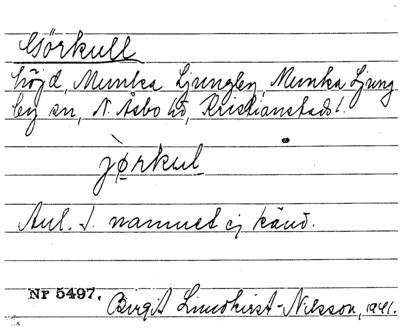 Görkull
höjd, Munka Ljungby, Munka Ljung
by sn, N. Åsbo hd, Kristianstads l.
jørkul
Anl. t. namnet ej känd.
Nr 5497. Birgit Lindkvist-Nilsson, 1941.